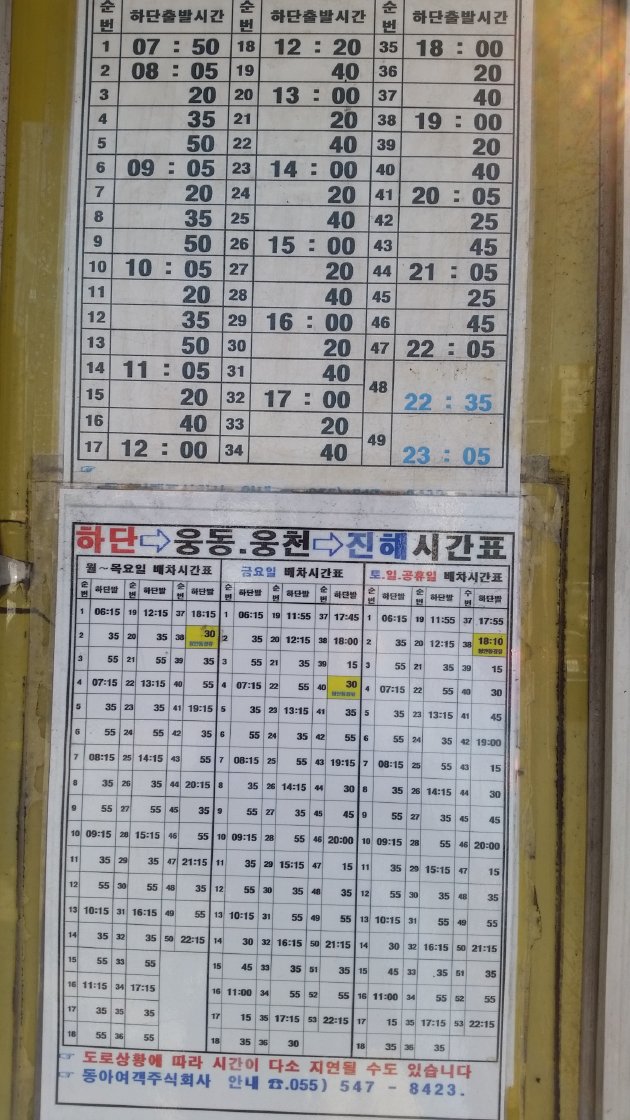 순번 하단출발시간 순번 하단출발시간 순번 하단출발시간
1 07 : 50 18 12 : 20 35 18 : 00
2 08 : 05 19 40 36 20
3 20 20 13 : 00 37 40
4 35 21 20 38 19 : 00
5 50 22 40 39 20
6 09 : 05 23 14 : 00 40 40
7 20 24 20 41 20 : 05
8 35 25 40 42 25
9 50 26 15 : 00 43 45
10 10 : 05 27 20 44 21 : 05
11 20 28 40 45 25
12 35 29 16 : 00 46 45
13 50 30 20 47 22 : 05
14 11 : 05 31 40 48 22 : 35
15 20 32 17 : 00
16 40 33 20 49 23 : 05
17 12 : 00 34 40
하단⇨웅동.웅천⇨진해시간표
월~목요일 배차시간표 금요일 배차시간표 토.일.공휴일 배차시간표
순번 하단발 순번 하단발 순번 하단발 순번 하단발 순번 하단발 순번 하단발 순번 하단발 순번 하단발 수번 하단발
1 06:15 19 12:15 37 18:15 1 06:15 19 11:55 37 17:45 1 06:15 19 11:55 37 17:55
2 35 20 35 38 30 2 35 20 12:15 38 18:00 2 35 20 12:15 38 18:10
3 55 21 55 39 35 3 55 21 35 39 15 3 55 21 35 39 15
4 07:15 22 13:15 40 55 4 07:15 22 55 40 30 4 07:15 22 55 40 30
5 35 23 35 41 19:15 5 35 23 13:15 41 35 5 35 23 13:15 41 45
6 55 24 55 42 35 6 55 24 35 42 55 6 55 24 35 42 19:00
7 08:15 25 14:15 43 55 7 08:15 25 55 43 19:15 7 08:15 25 55 43 15
8 35 26 35 44 20:15 8 35 26 14:15 44 30 8 35 26 14:15 44 30
9 55 27 55 45 35 9 55 27 35 45 45 9 55 27 35 45 45
10 09:15 28 15:15 46 55 10 09:15 28 55 46 20:00 10 09:15 28 55 46 20:00
11 35 29 35 47 21:15 11 35 29 15:15 47 15 11 35 29 15:15 47 15
12 55 30 55 48 35 12 55 30 35 48 35 12 55 30 35 48 35
13 10:15 31 16:15 49 55 13 10:15 31 55 49 55 13 10:15 31 55 49 55
14 35 32 35 50 22:15 14 30 32 16:15 50 21:15 14 30 32 16:15 50 21:15
15 55 33 55 15 45 33 35 51 35 15 45 33 35 51 35
16 11:15 34 17:15 16 11:00 34 55 52 55 16 11:00 34 55 52 55
17 35 35 35 17 15 35 17:15 53 22:15 17 15 35 17:15 53 22:15
18 55 36 55 18 35 36 30 18 35 36 35
☞ 도로상황에 따라 시간이 다소 지연될 수도 있습니다
☞ 동아여객주식회사 안내 ☎.055) 547 - 8423.